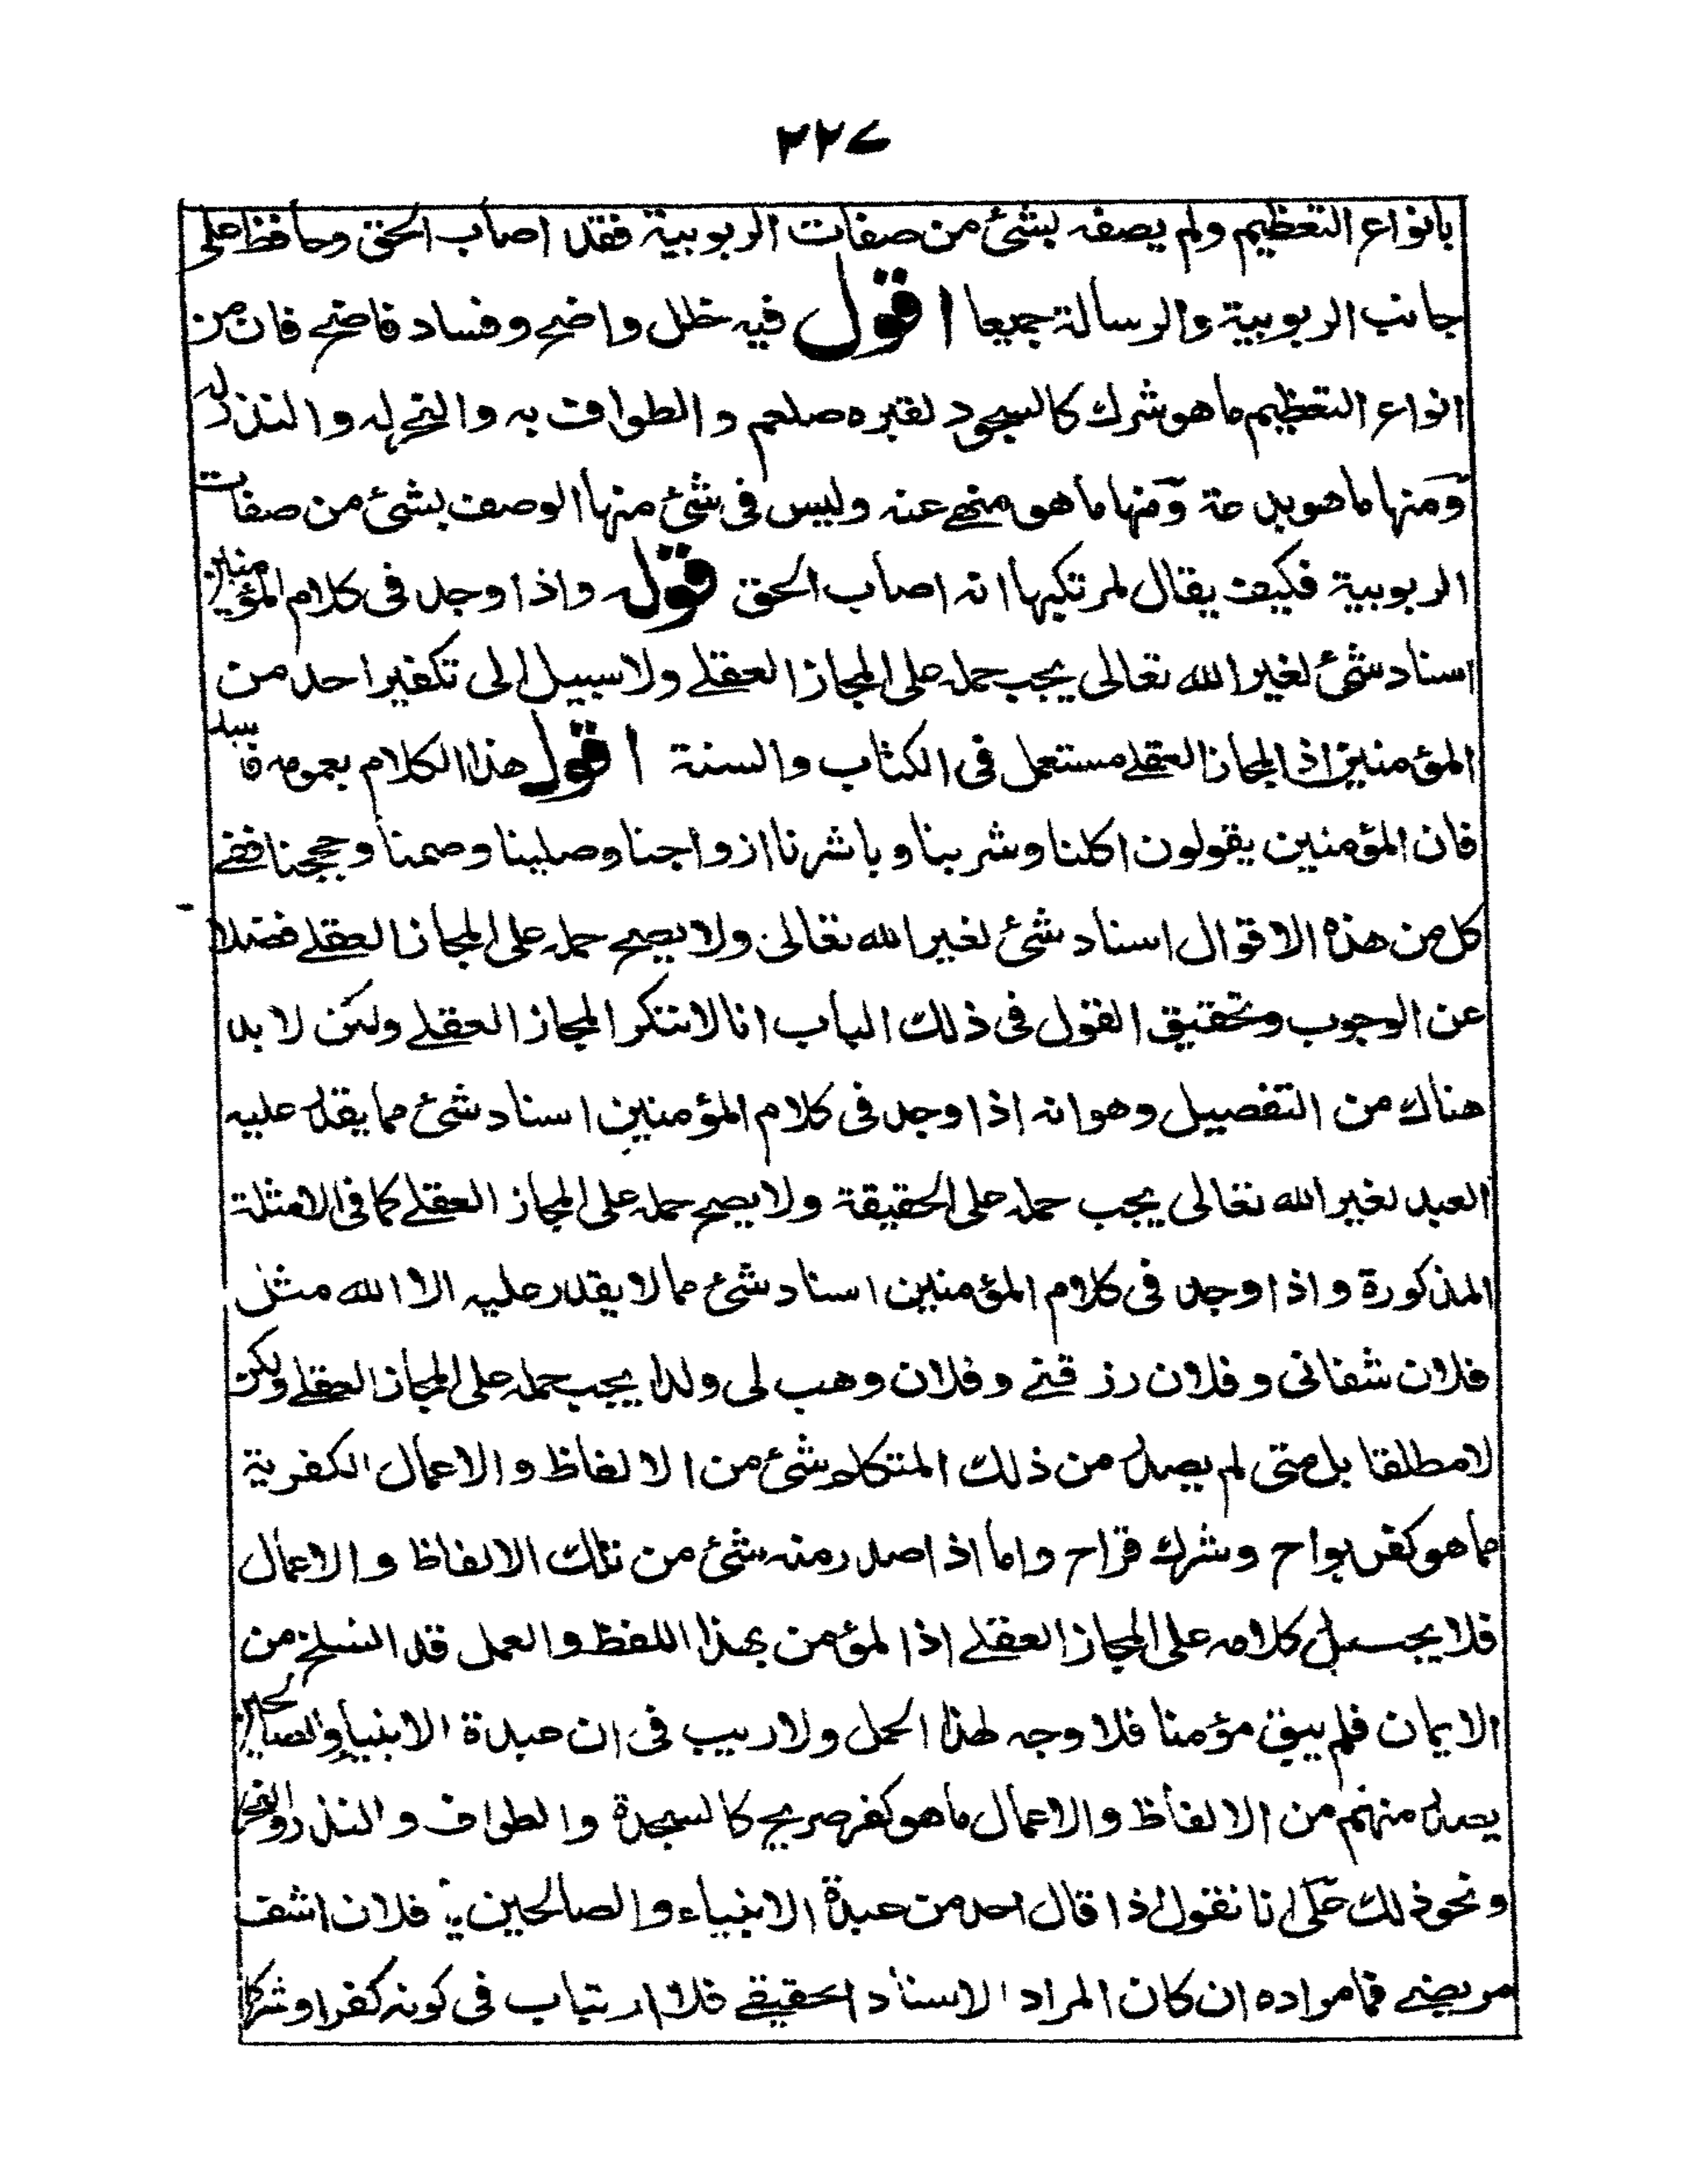 ٢٢٧
بانواع التعظيم ولم يصفه بشئ من صفات الربوبية فقد اصاب الحق وحافظ على
جانب الربوبية والرسالة جميعا اقول فيه خلل واضح وفساد فاضح فان من
انواع التعظيم ما هو شرك كالسجود لقبره صلعم والطواف به والنحر له والنذر له
ومنها ما هو بدعة ومنها ما هو منهے عنه وليس فى شئ منها الوصف بشئ من صفات
الربوبية فكيف يقال لمرتكبها انه اصاب الحق قوله واذا وجد فى كلام المؤمنين
اسناد شئ لغير الله تعالى يجب حمله على المجاز العقلے ولا سبيل الى تكفير احد من
المؤمنين اذ المجاز العقلے مستعمل فى الكتاب والسنة اقول هذا الكلام بعمومه فاسد
فان المؤمنين يقولون اكلنا وشربنا وباشرنا ازواجنا وصلينا وصمنا وحججنا ففے
كل من هذه الاقوال اسناد شئ لغير الله تعالى ولا يصح حمله على المجاز العقلے فضلا
عن الوجوب وتحقيق القول فى ذلك الباب انا لا ننكر المجاز العقلے ولكن لا بد
هناك من التفصيل وهو انه اذا وجد فى كلام المؤمنين اسناد شئ مما يقدر عليه
العبد لغير الله تعالى يجب حمله على الحقيقة ولا يصح حمله على المجاز العقلے كما فى الامثلة
المذكورة واذا وجد فى كلام المؤمنين اسناد شئ مما لا يقدر عليه الا الله مثل
فلان شفانى وفلان رزقنے وفلان وهب لى ولدا يجب حمله على المجاز العقلے ولكن
لا مطلقا بل متى لم يصدر من ذلك المتكلم شئ من الالفاظ والاعمال الكفرية
مما هو كفر بواح وشرك قراح واما اذا صدر منه شئ من تلك الالفاظ والاعمال
فلا يجب حمل كلامه على المجاز العقلے اذ المؤمن بهذا اللفظ والعمل قد انسلخ من
الايمان فلم يبق مؤمنا فلا وجه لهذا الحمل ولا ريب فى ان عبدة الانبياء والصالحين
يصدر منهم من الالفاظ والاعمال ما هو كفر صريح كالسجدة والطواف والنذر والنحر
ونحو ذلك على انا نقول اذا قال احد من عبدة الانبياء والصالحين فلان اشف
مريضے فما مراده ان كان المراد الاسناد الحقيقے فلا ارتياب فى كونه كفرا وشركا